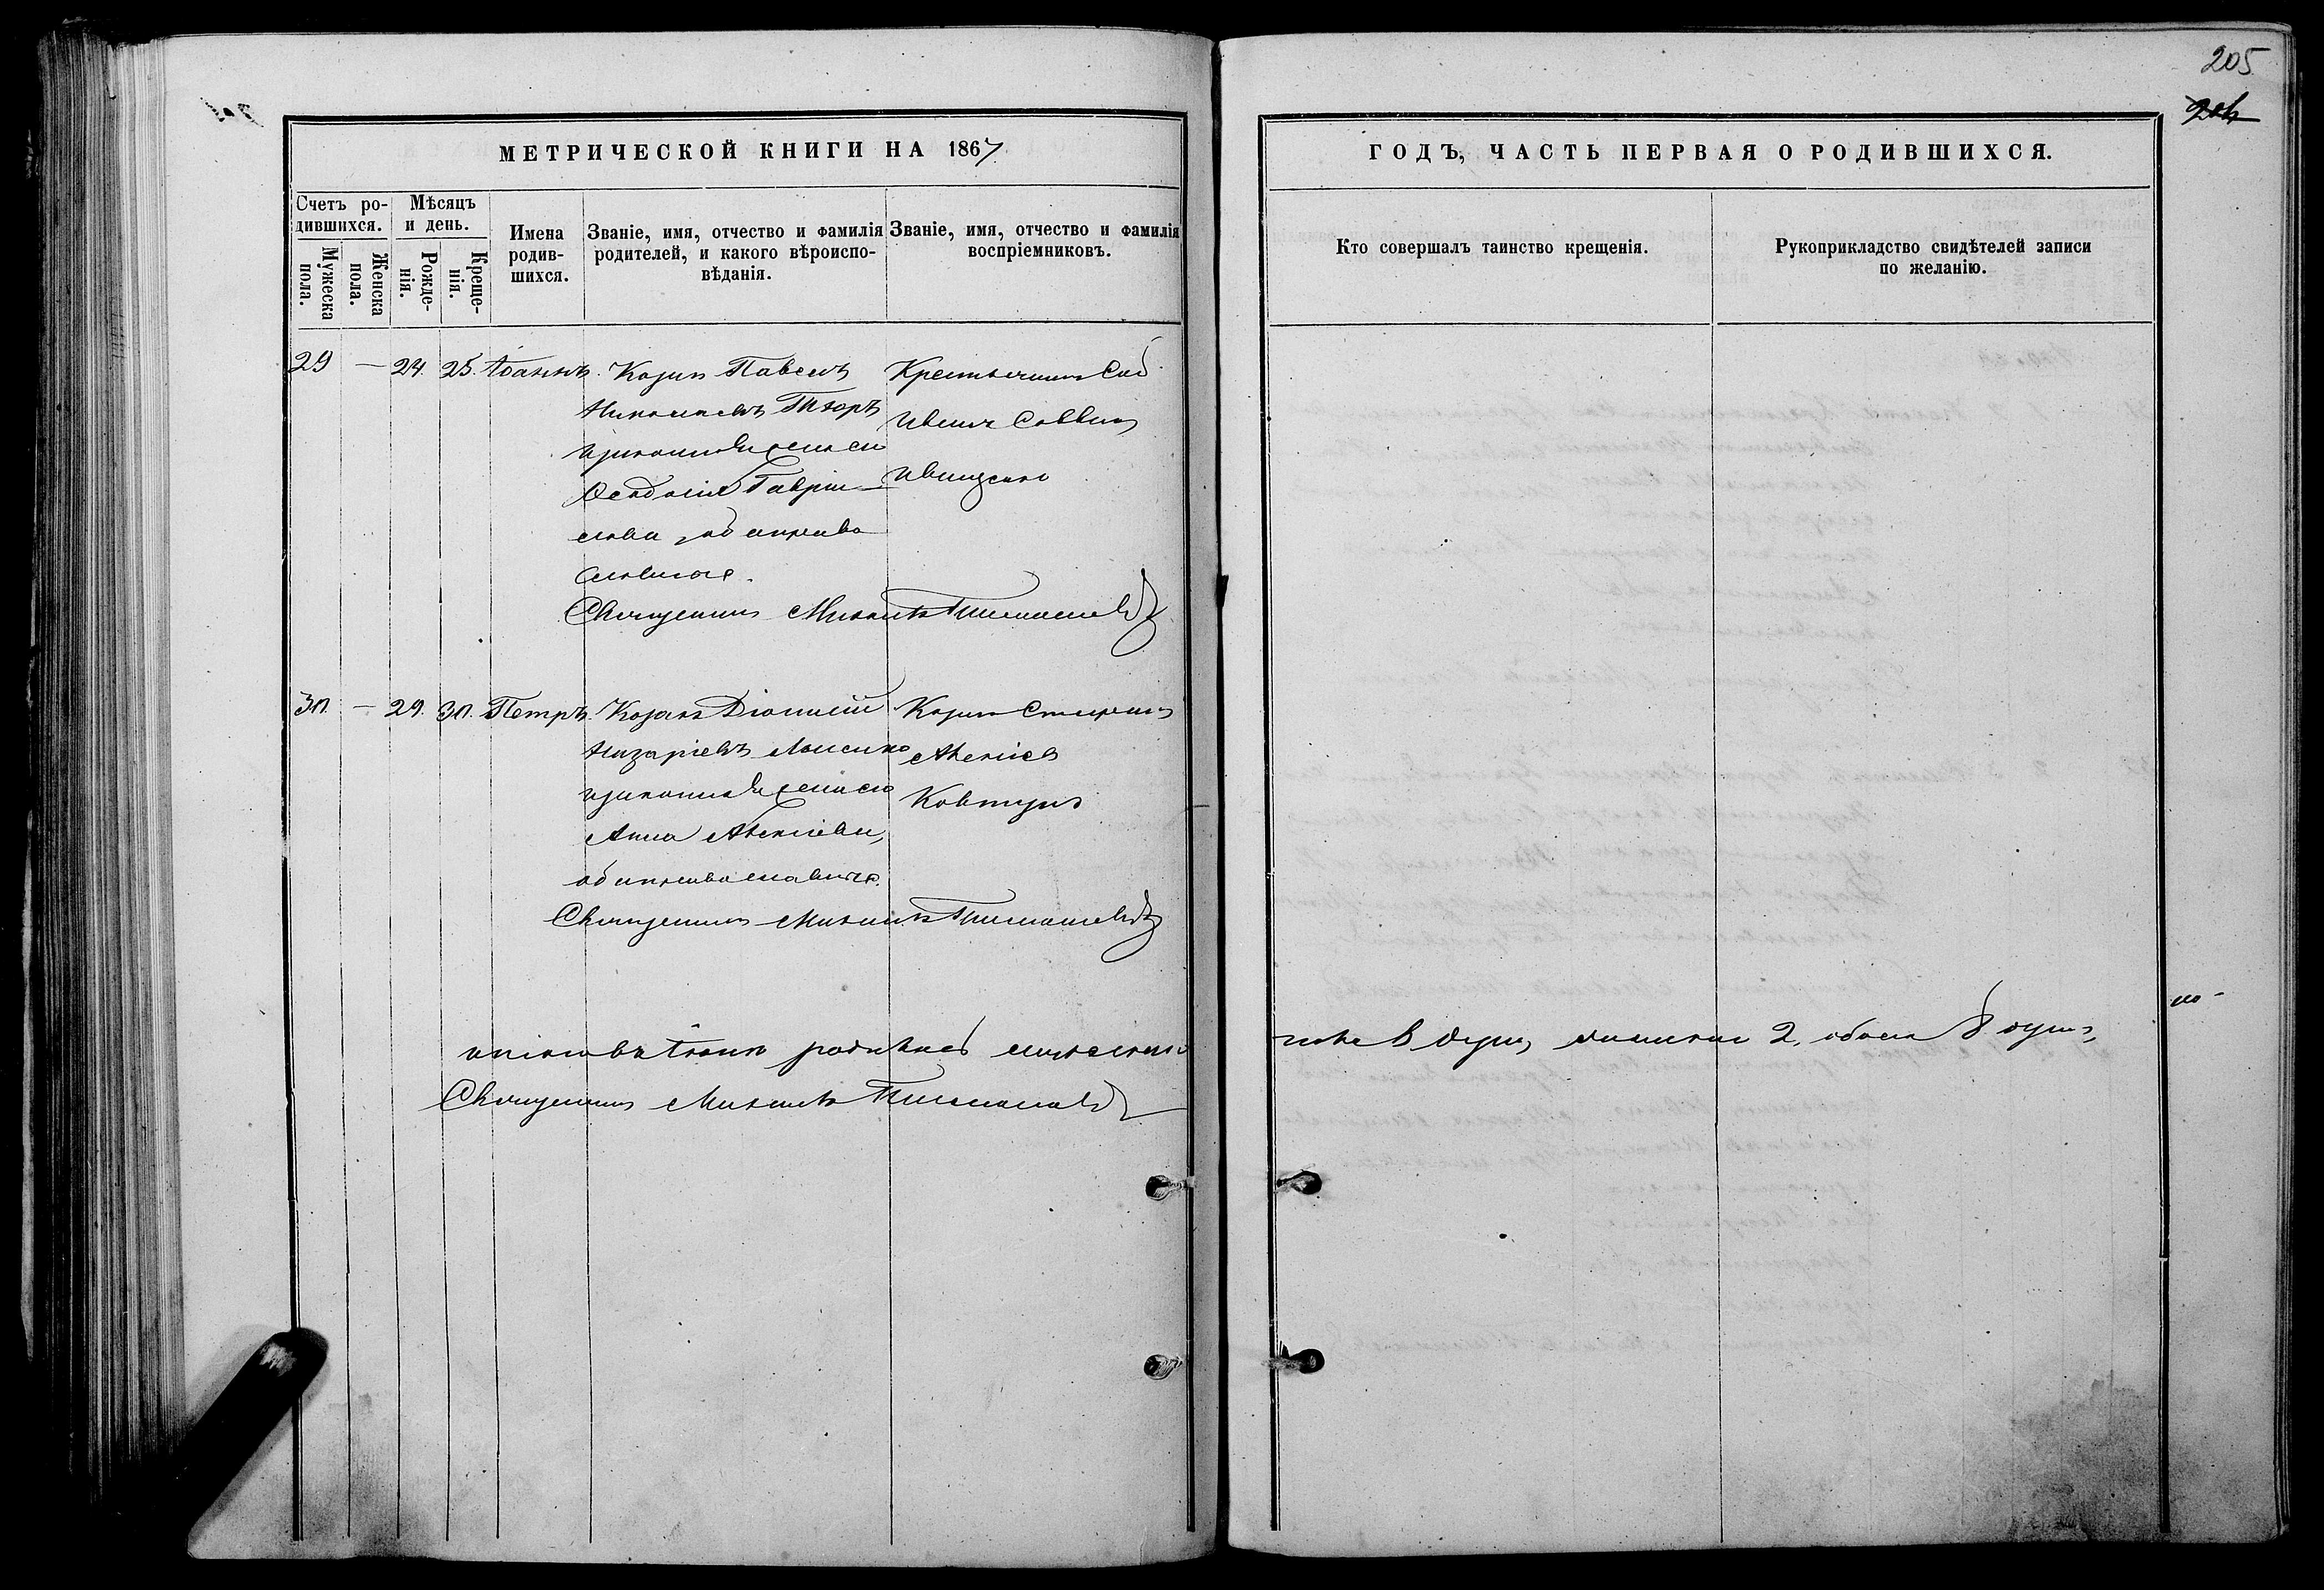 205
204
МЕТРИЧЕСКОЙ КНИГИ НА 1867
ГОДЪ, ЧАСТЬ ПЕРВАЯ О РОДИВШИХСЯ.
Счетъ ро-
дившихся.
Мужеска
пола.
Женска
пола.
Мѣсяцъ
и день.
Рожде-
нія.
Креще-
нія.
Имена
родив-
шихся.
Званіе, имя, отчество и фамилія
родителей, и какого вѣроиспо-
вѣданія.
Званіе, имя, отчество и фамилія
воспріемниковъ.
Кто совершалъ таинство крещенія.
Рукоприкладство свидѣтелей записи
по желанію.
29 — 24. 25. Іоаннъ.
Козакъ Павелъ
Николаевъ
и законная жена его
Ѳеодосія Гаврии
лова, оба право
славные.
Иванъ Саввинъ
Иващенко
Священникъ Михаилъ
30. — 29. 30. Петръ.
Козакъ Діонисій
Назаріевъ Лысенко
и законная жена его
Анна Алексіева,
оба православные.
Козакъ
Алексіевъ
Ковтунъ
Священникъ Михаилъ
родилось мужеска
пола 6 душъ, женска 2, обоего 8 душъ,
Священникъ Михаилъ